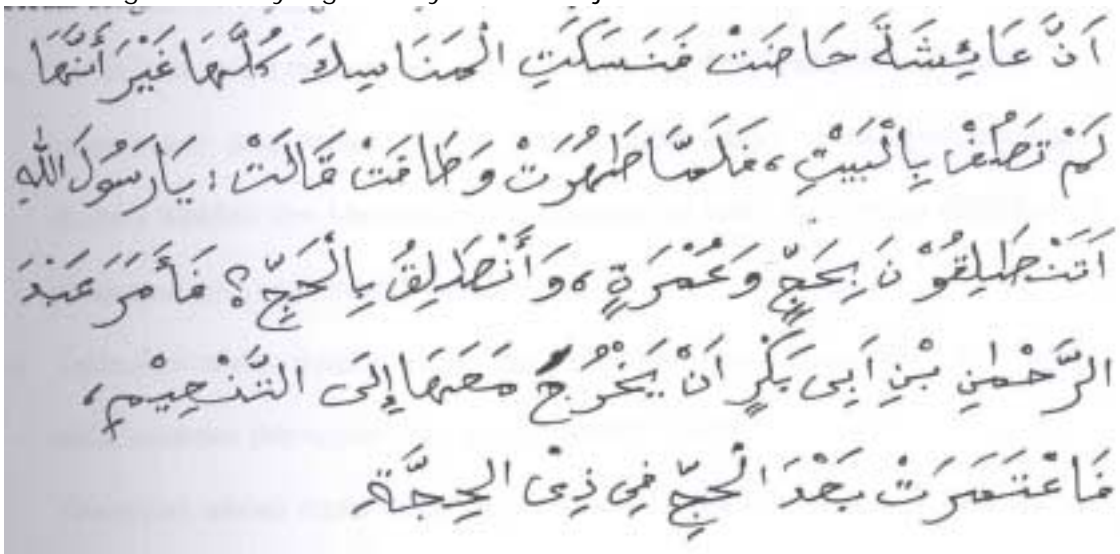 اَنَّ عَائِشَةَ حَاضَتْ فَنَسَكَتِ الْمَنَاسِكَ كُلَّهَا غَيْرَ أَنَّهَا
لَمْ تَطُفْ بِالْبَيْتِ، فَلَمَّا طَهُرَتْ وَطَافَتْ قَالَتْ: يَارَسُولَ اللّٰهِ
اَتَنْطَلِقُوْنَ بِحَجٍّ وَعُمْرَةٍ، وَأَنْطَلِقُ بِالْحَجِّ؟ فَأَمَرَ عَبْدَ
الرَّحْمٰنِ بْنِ اَبِى بَكْرٍ اَنْ يَخْرُجَ مَعَهَا إِلَى التَّنْعِيْمِ،
فَاعْتَمَرَتْ بَعْدَ الْحَجِّ فِى ذِى الْحِجَّةِ